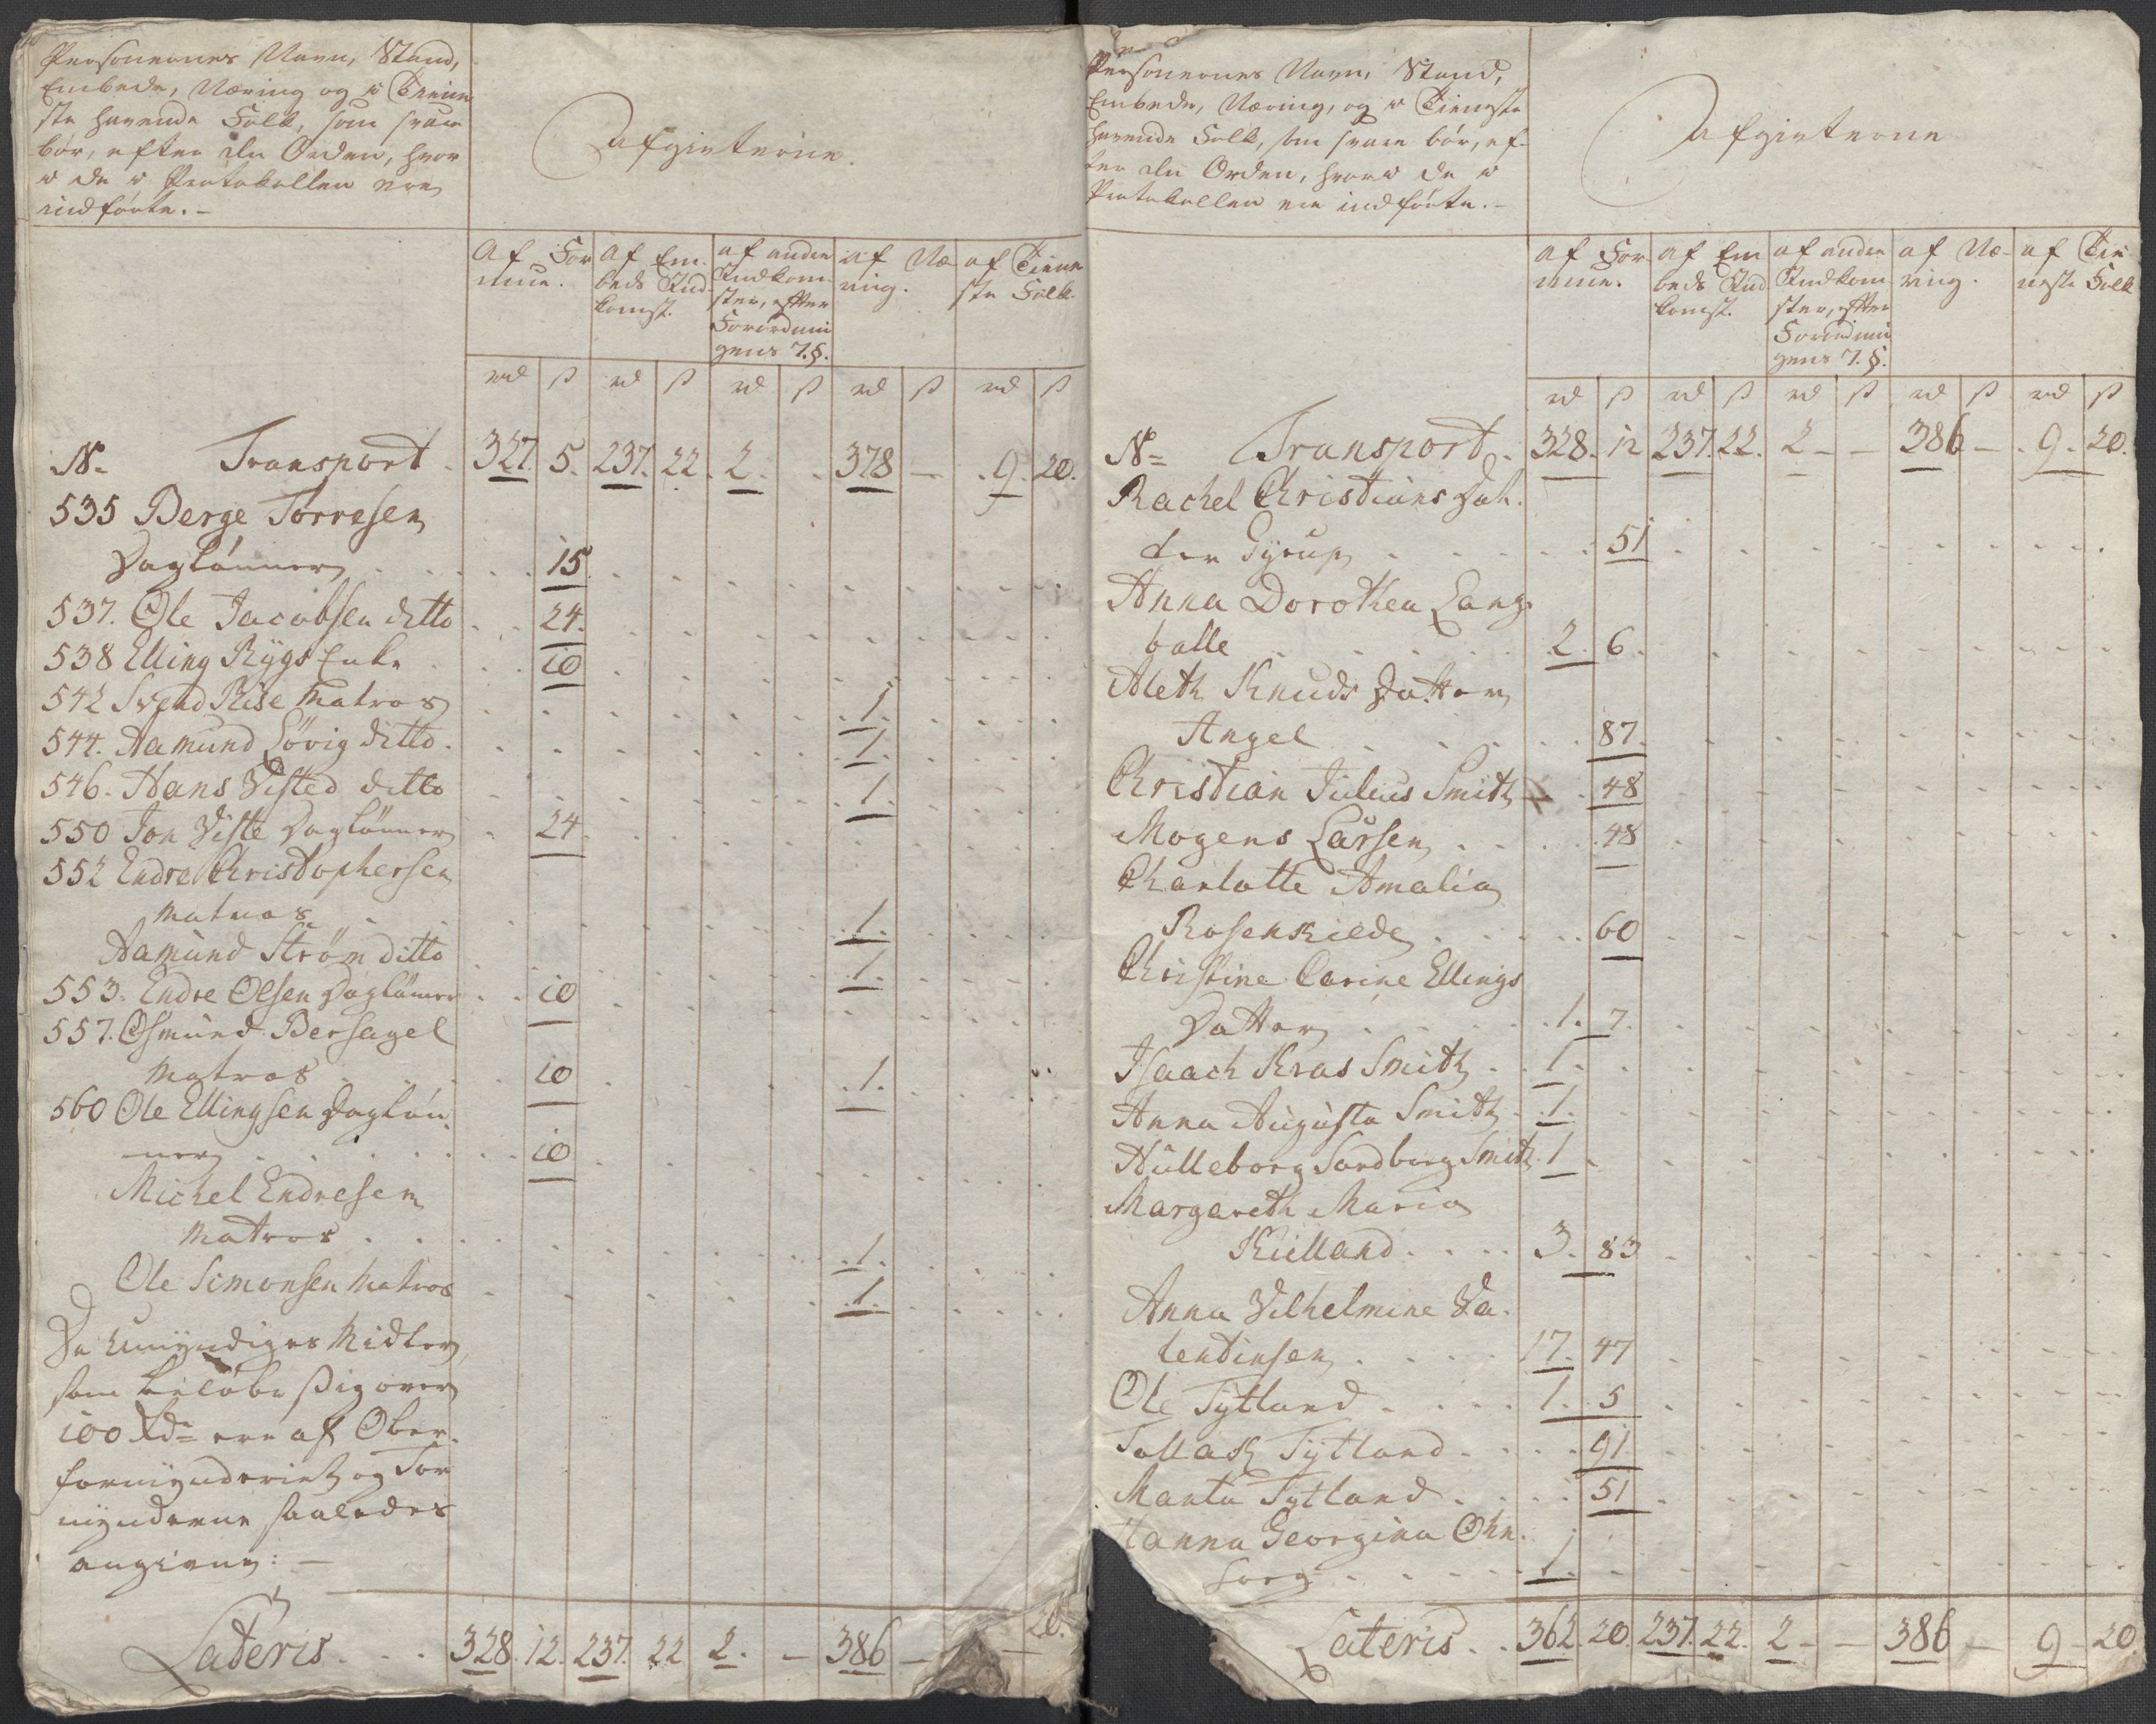 Personernes Navn, Stand,
Embede, Næring og i Tienne
ste havende Folk, som svare
bør, efter den Orden, hvor
i de i Protokollen ere
indførte. -
Afgivterne.
Af For
mue.
Af Em
beds Ind
komst.
af anden
Indkom
ster, efter
Forordnin
gens 7. §.
af Næ
ring.
af Tienne
ste Folk.
rd ß rd ß rd ß rd ß rd ß
No Transport . 327. 5. 237. 22. 2. . 378 - . 9. 20.
535 Berge Torresen
Daglønner . . . 15.
537. Ole Jacobsen ditto . . 24.
538 Elling Rygs Enke . . 10
542 Svend Rise Matros . . 1.
544. Aamund Løvig ditto . . 1.
546. Hans Visted ditto . . 1.
550 Jon Viste Daglønner . 24.
552 Endre Christophersen
Matros . . 1.
Aamund Strøm ditto . . 1.
553. Endre Olsen Daglønner . . 10
557. Osmund Bersagel
Matros . . 10 . . 1.
560 Ole Ellingsen Dagløn
ner . . . 10
Michel Endresen
Matros . . . 1.
Ole Simonsen Matros . . 1.
De Umyndiges Midler,
som beløbe ßig over
100 Rdr ere af Ober-
formynderiet og For
mynderne saaledes
angivne: -
Lateris . . . 328. 12. 237. 22 2. - 386 - 20.
Personernes Navn, Stand,
Embede, Næring, og i Tieneste
havende Folk, som svare bør, ef-
ter den Orden, hvori de i
Protokollen ere indførte. -
Afgivterne
af For
mue.
af Em
beds Ind
komst.
af anden
Indkom
ster, efter
Forordnin
gens 7. §.
af Næ-
ring.
af Tie
neste Folk
rd ß rd ß rd ß rd ß rd ß
No Transport . 328. 12 237. 22. 2 - - 386 - . 9. 20.
Rachel Christians Dat.
ter Syrup . . . 51
Anna Dorothea Lang
balle . . 2. 6.
Aleth Knuds Datter
Angel . . . 87.
Christian Julius Smith . 48
Mogens Larsen . . . 48
Charlotte Amalia
Rosenkilde . . . 60
Christine Carine Ellings
Datter . . . 1. 7.
Isaach Kras Smith . . 1.
Anna Augusta Smith . 1.
Hulleborg Sandborg Smith . 1
Margareth Maria
Kielland . . . 3. 83
Anna Vilhelmine Va-
lentinsen . . . 17. 47
Ole Tytland . . . . 1. 5
Tollak Tytland . . . . 91
Marta Tytland . . . . 51
Hanna Georgina Ohn
sorg . . . . 1.
Lateris . . 362. 20. 237. 22. 2 - - 386 - 9 - 20.